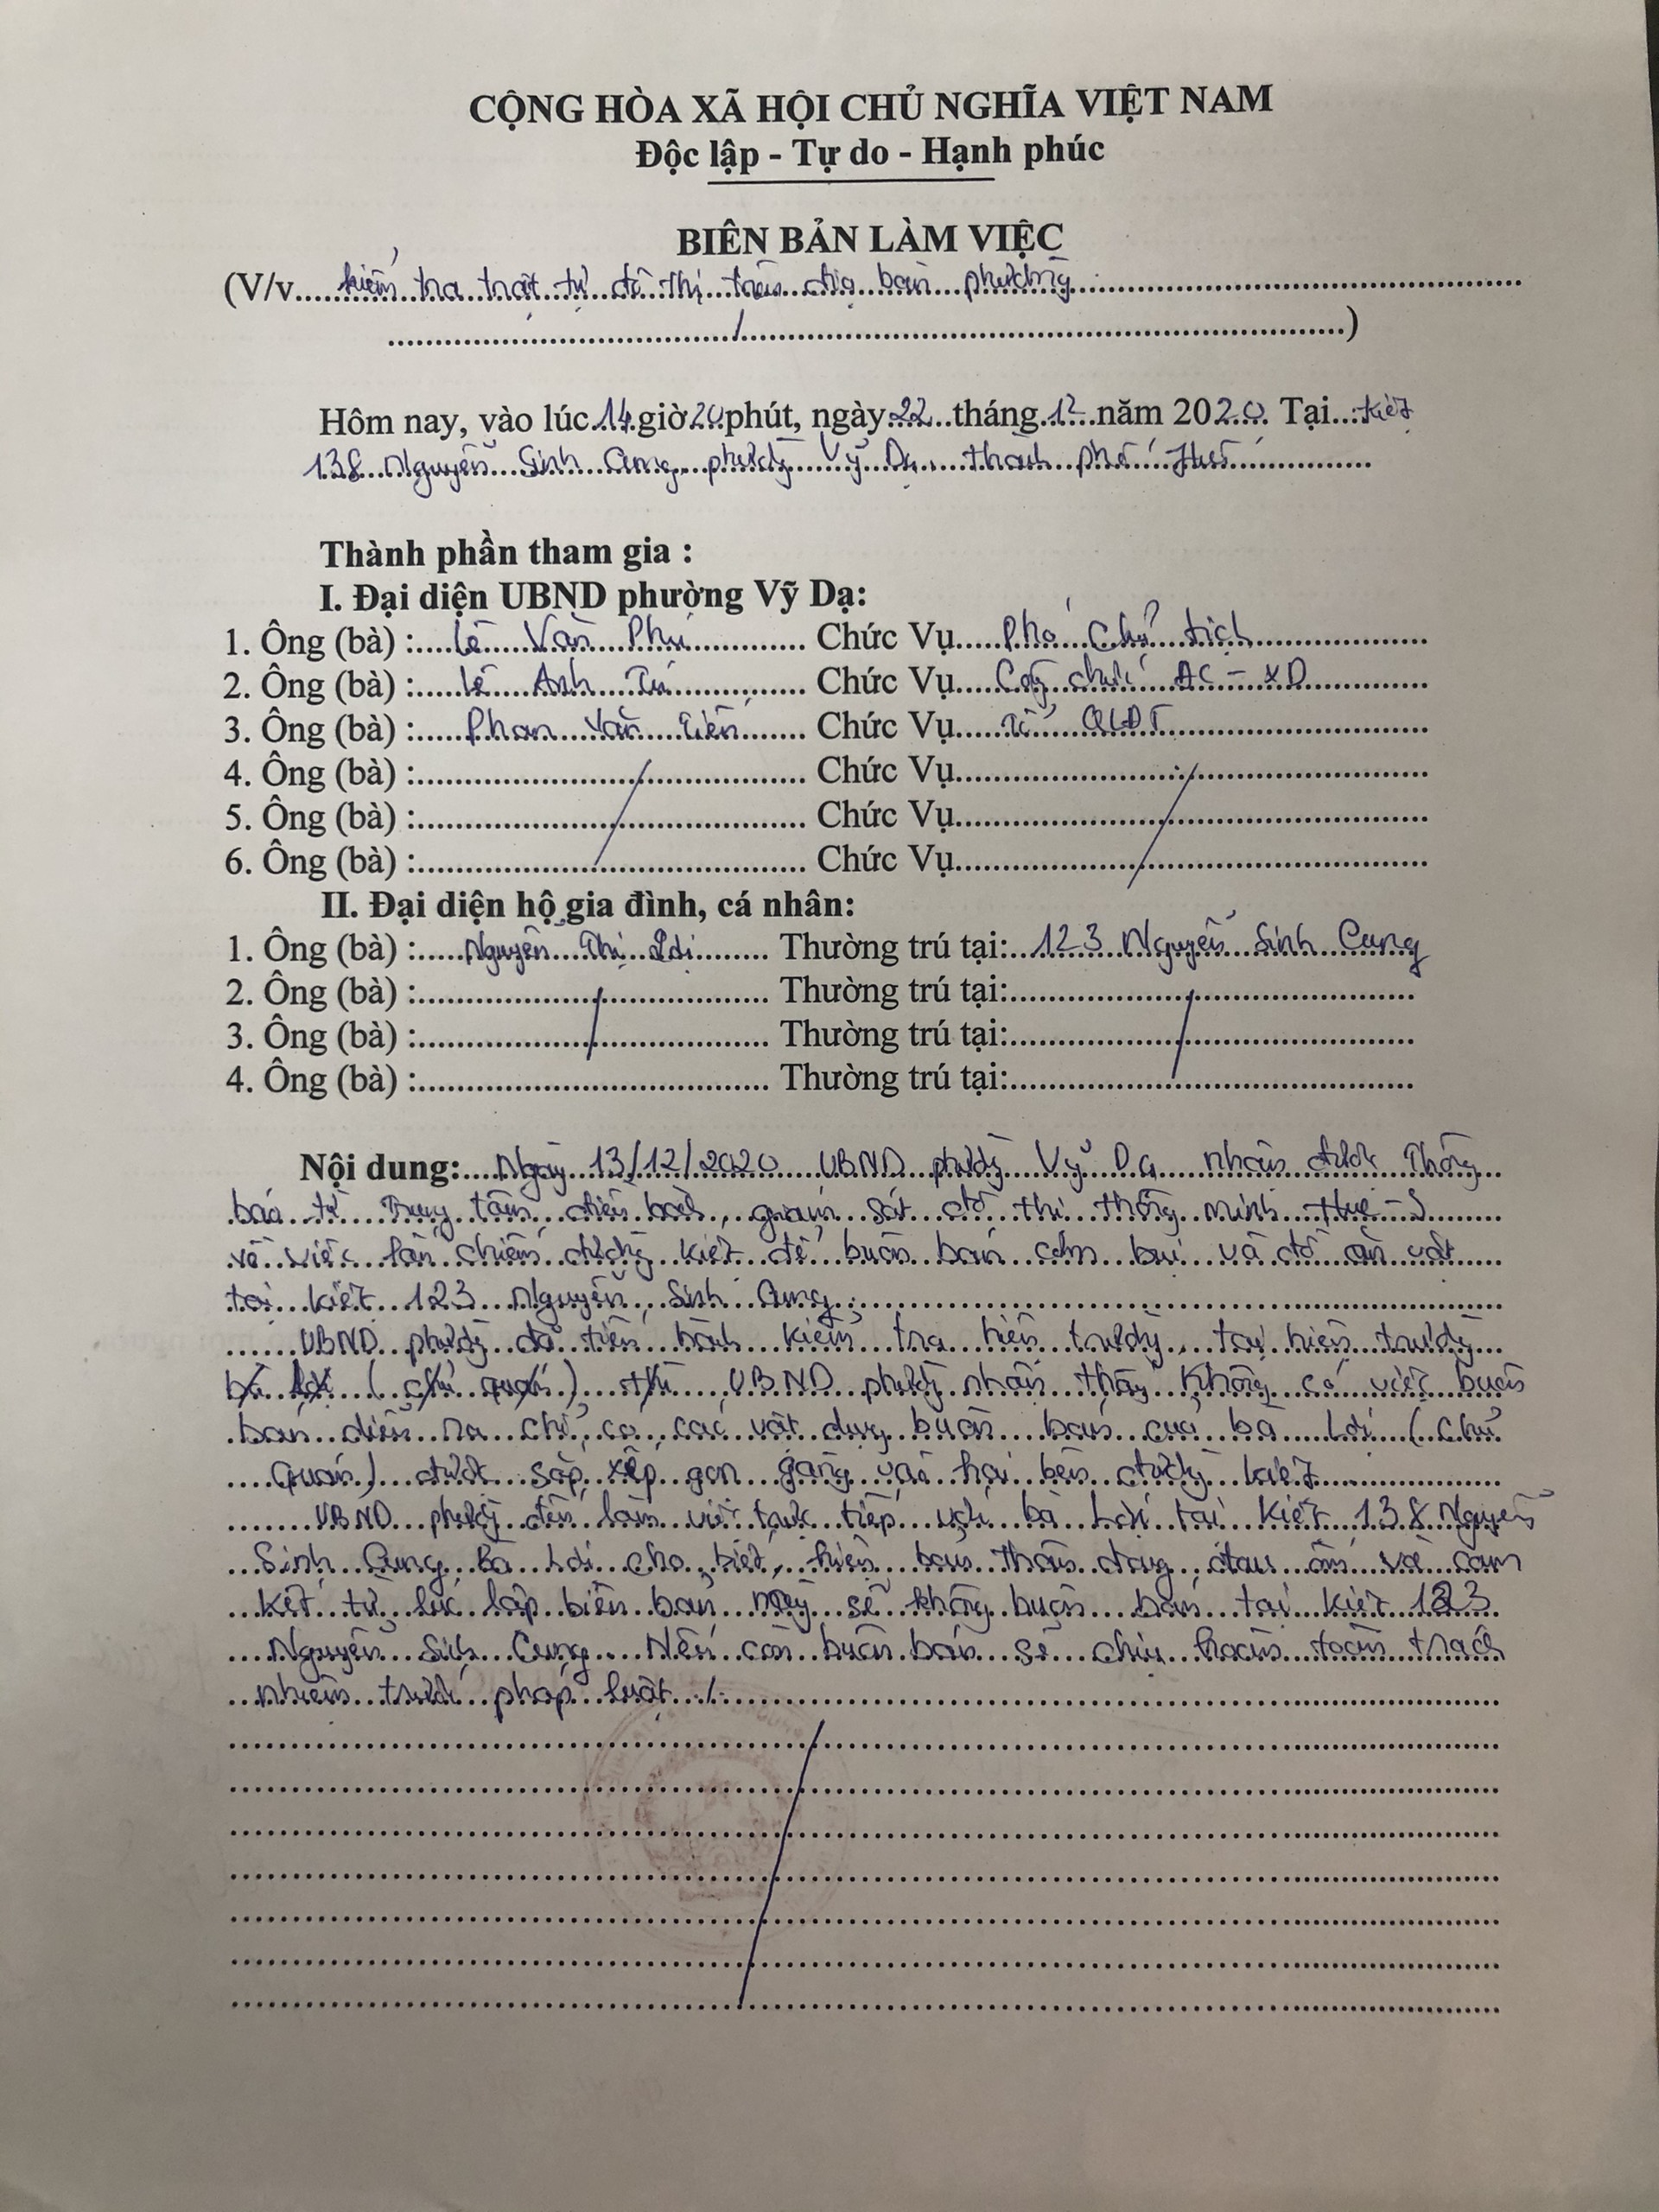 CỘNG HÒA XÃ HỘI CHỦ NGHĨA VIỆT NAM
Độc lập - Tự do - Hạnh phúc
BIÊN BẢN LÀM VIỆC
(V/v.... kiểm tra trật tự đô thị trên địa bàn phường
...../.....)
Hôm nay, vào lúc 14 giờ 20 phút, ngày 22 tháng 12 năm 2020. Tại : kiệt
138 Nguyễn Sinh Cung, phường Vỹ Dạ, thành phố Huế
Thành phần tham gia :
I. Đại diện UBND phường Vỹ Dạ:
1. Ông (bà) : Lê Văn Phú Chức Vụ Phó Chủ tịch
2. Ông (bà) : Lê Anh Tú Chức Vụ Công chức ĐC - XD
3. Ông (bà) : Phan Văn Tiến Chức Vụ Tổ QLĐT
4. Ông (bà) : Chức Vụ
5. Ông (bà) : Chức Vụ
6. Ông (bà) : Chức Vụ
II. Đại diện hộ gia đình, cá nhân:
1. Ông (bà) : Nguyễn Thị Lợi Thường trú tại: 123 Nguyễn Sinh Cung
2. Ông (bà) : Thường trú tại:
3. Ông (bà) : Thường trú tại:
4. Ông (bà) : Thường trú tại:
Nội dung: Ngày 13/12/2020 UBND phường Vỹ Dạ nhận được thông
báo từ Trung tâm điều hành, giám sát đô thị thông minh Hue-S
về việc lấn chiếm đường kiệt để buôn bán cơm bụi và đồ ăn vặt
tại kiệt 123 Nguyễn Sinh Cung.
UBND phường đã tiến hành kiểm tra hiện trường, tại hiện trường
bà Lợi (chủ quán) thì UBND phường nhận thấy không có việc buôn
bán diễn ra chỉ có các vật dụng buôn bán của bà Lợi (chủ
quán) được sắp xếp gọn gàng vào hai bên đường kiệt
UBND phường đến làm việc trực tiếp với bà Lợi tại kiệt 138 Nguyễn
Sinh Cung. Bà Lợi cho biết, hiện bản thân đang đau ốm và cam
kết từ lúc lập biên bản này sẽ không buôn bán tại kiệt 123
Nguyễn Sinh Cung. Nếu còn buôn bán sẽ chịu hoàn toàn trách
nhiệm trước pháp luật ./.